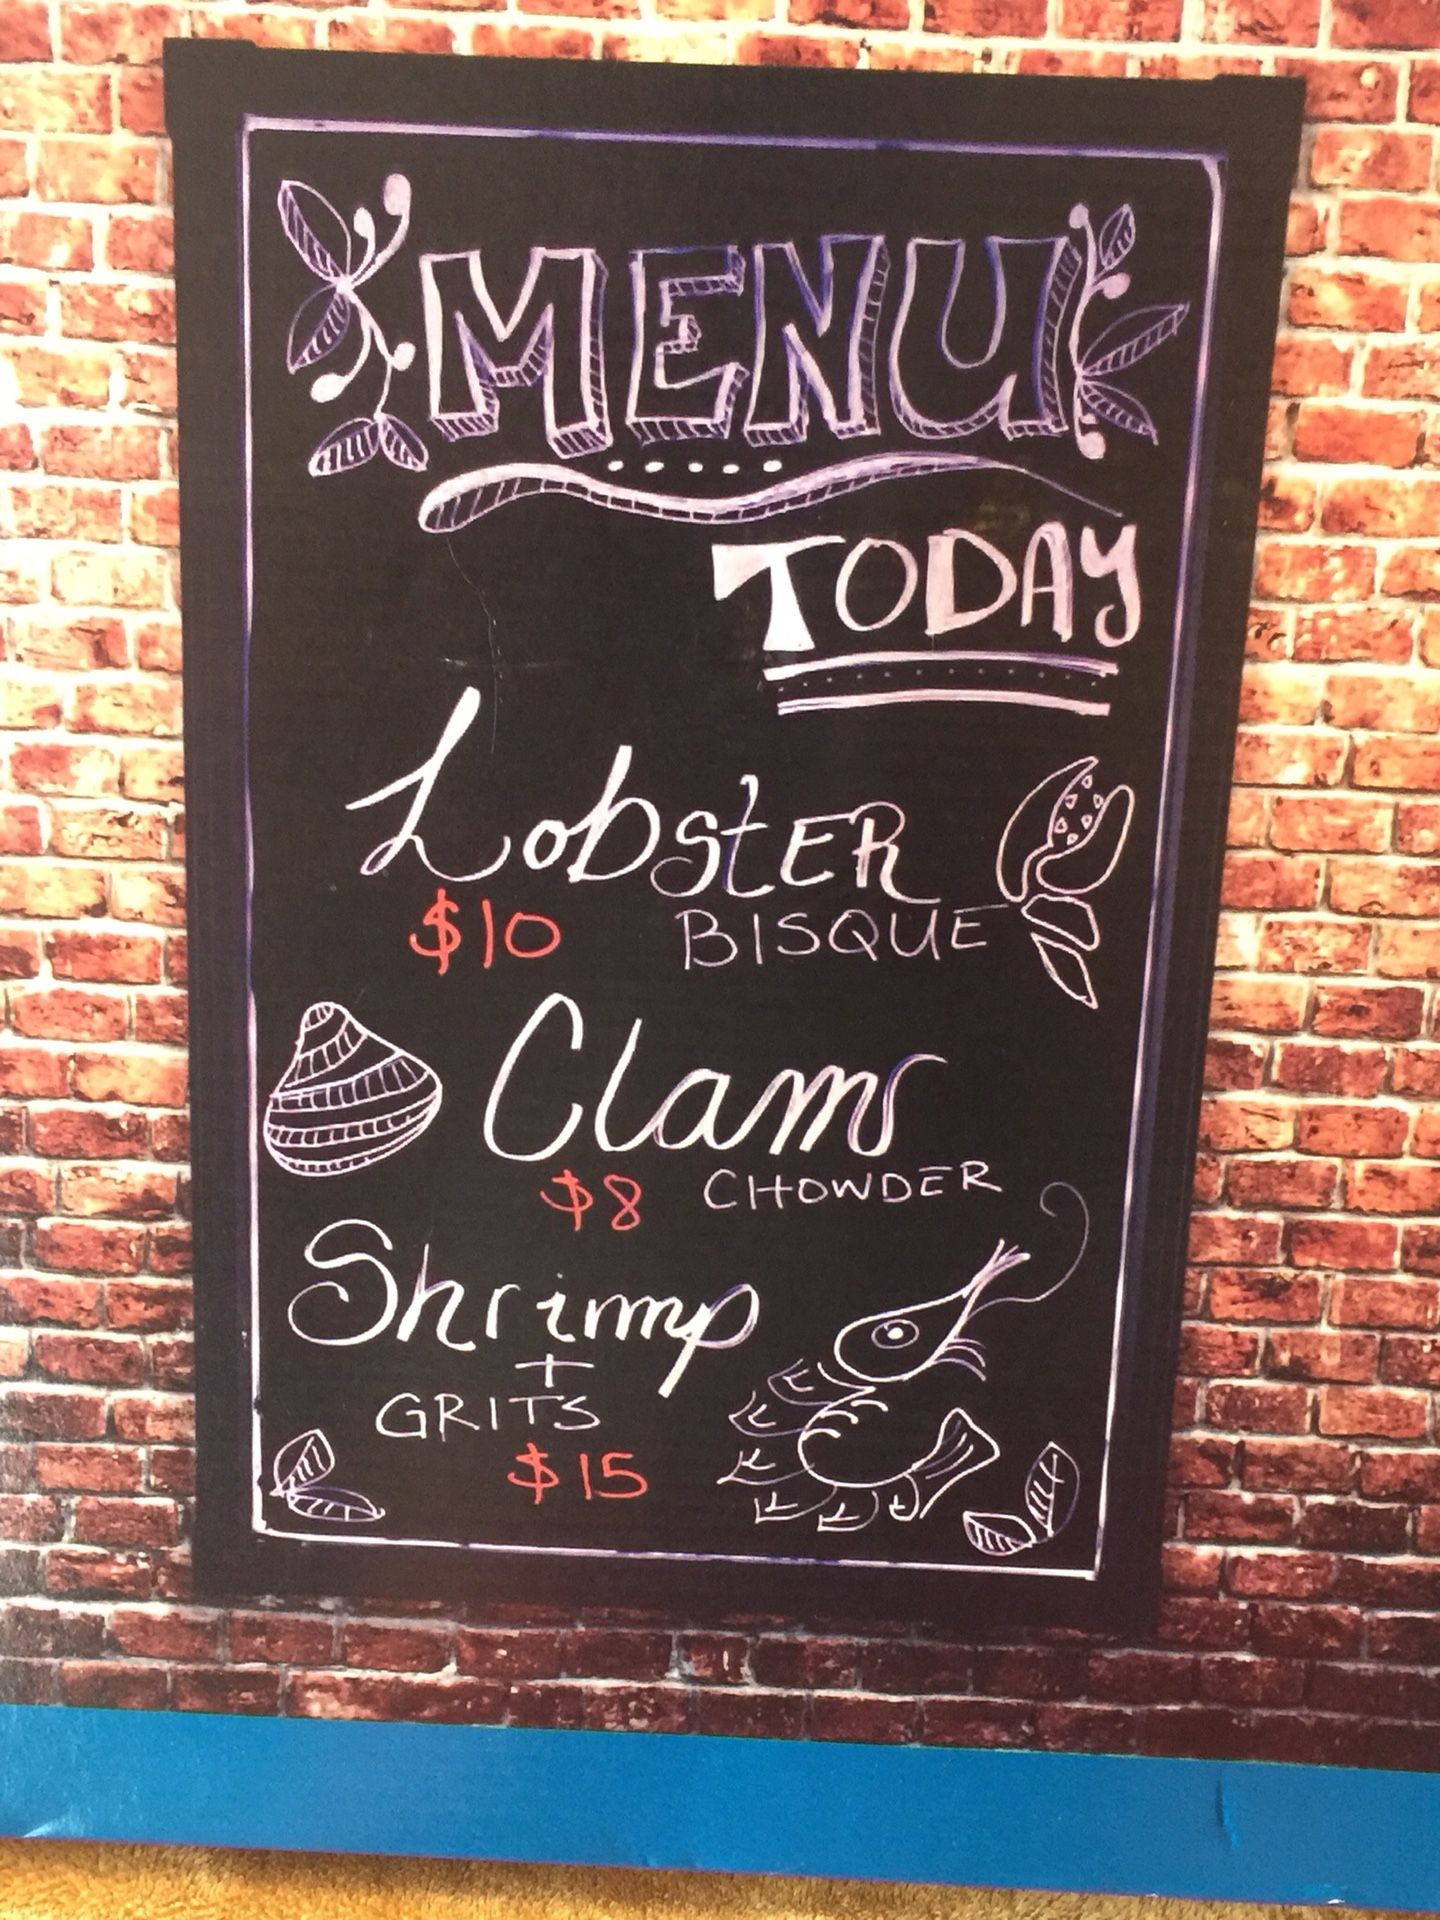 MENU
TODAY
Lobster
$10 BISQUE
Clam
$8 CHOWDER
Shrimp
+
GRITS
$15